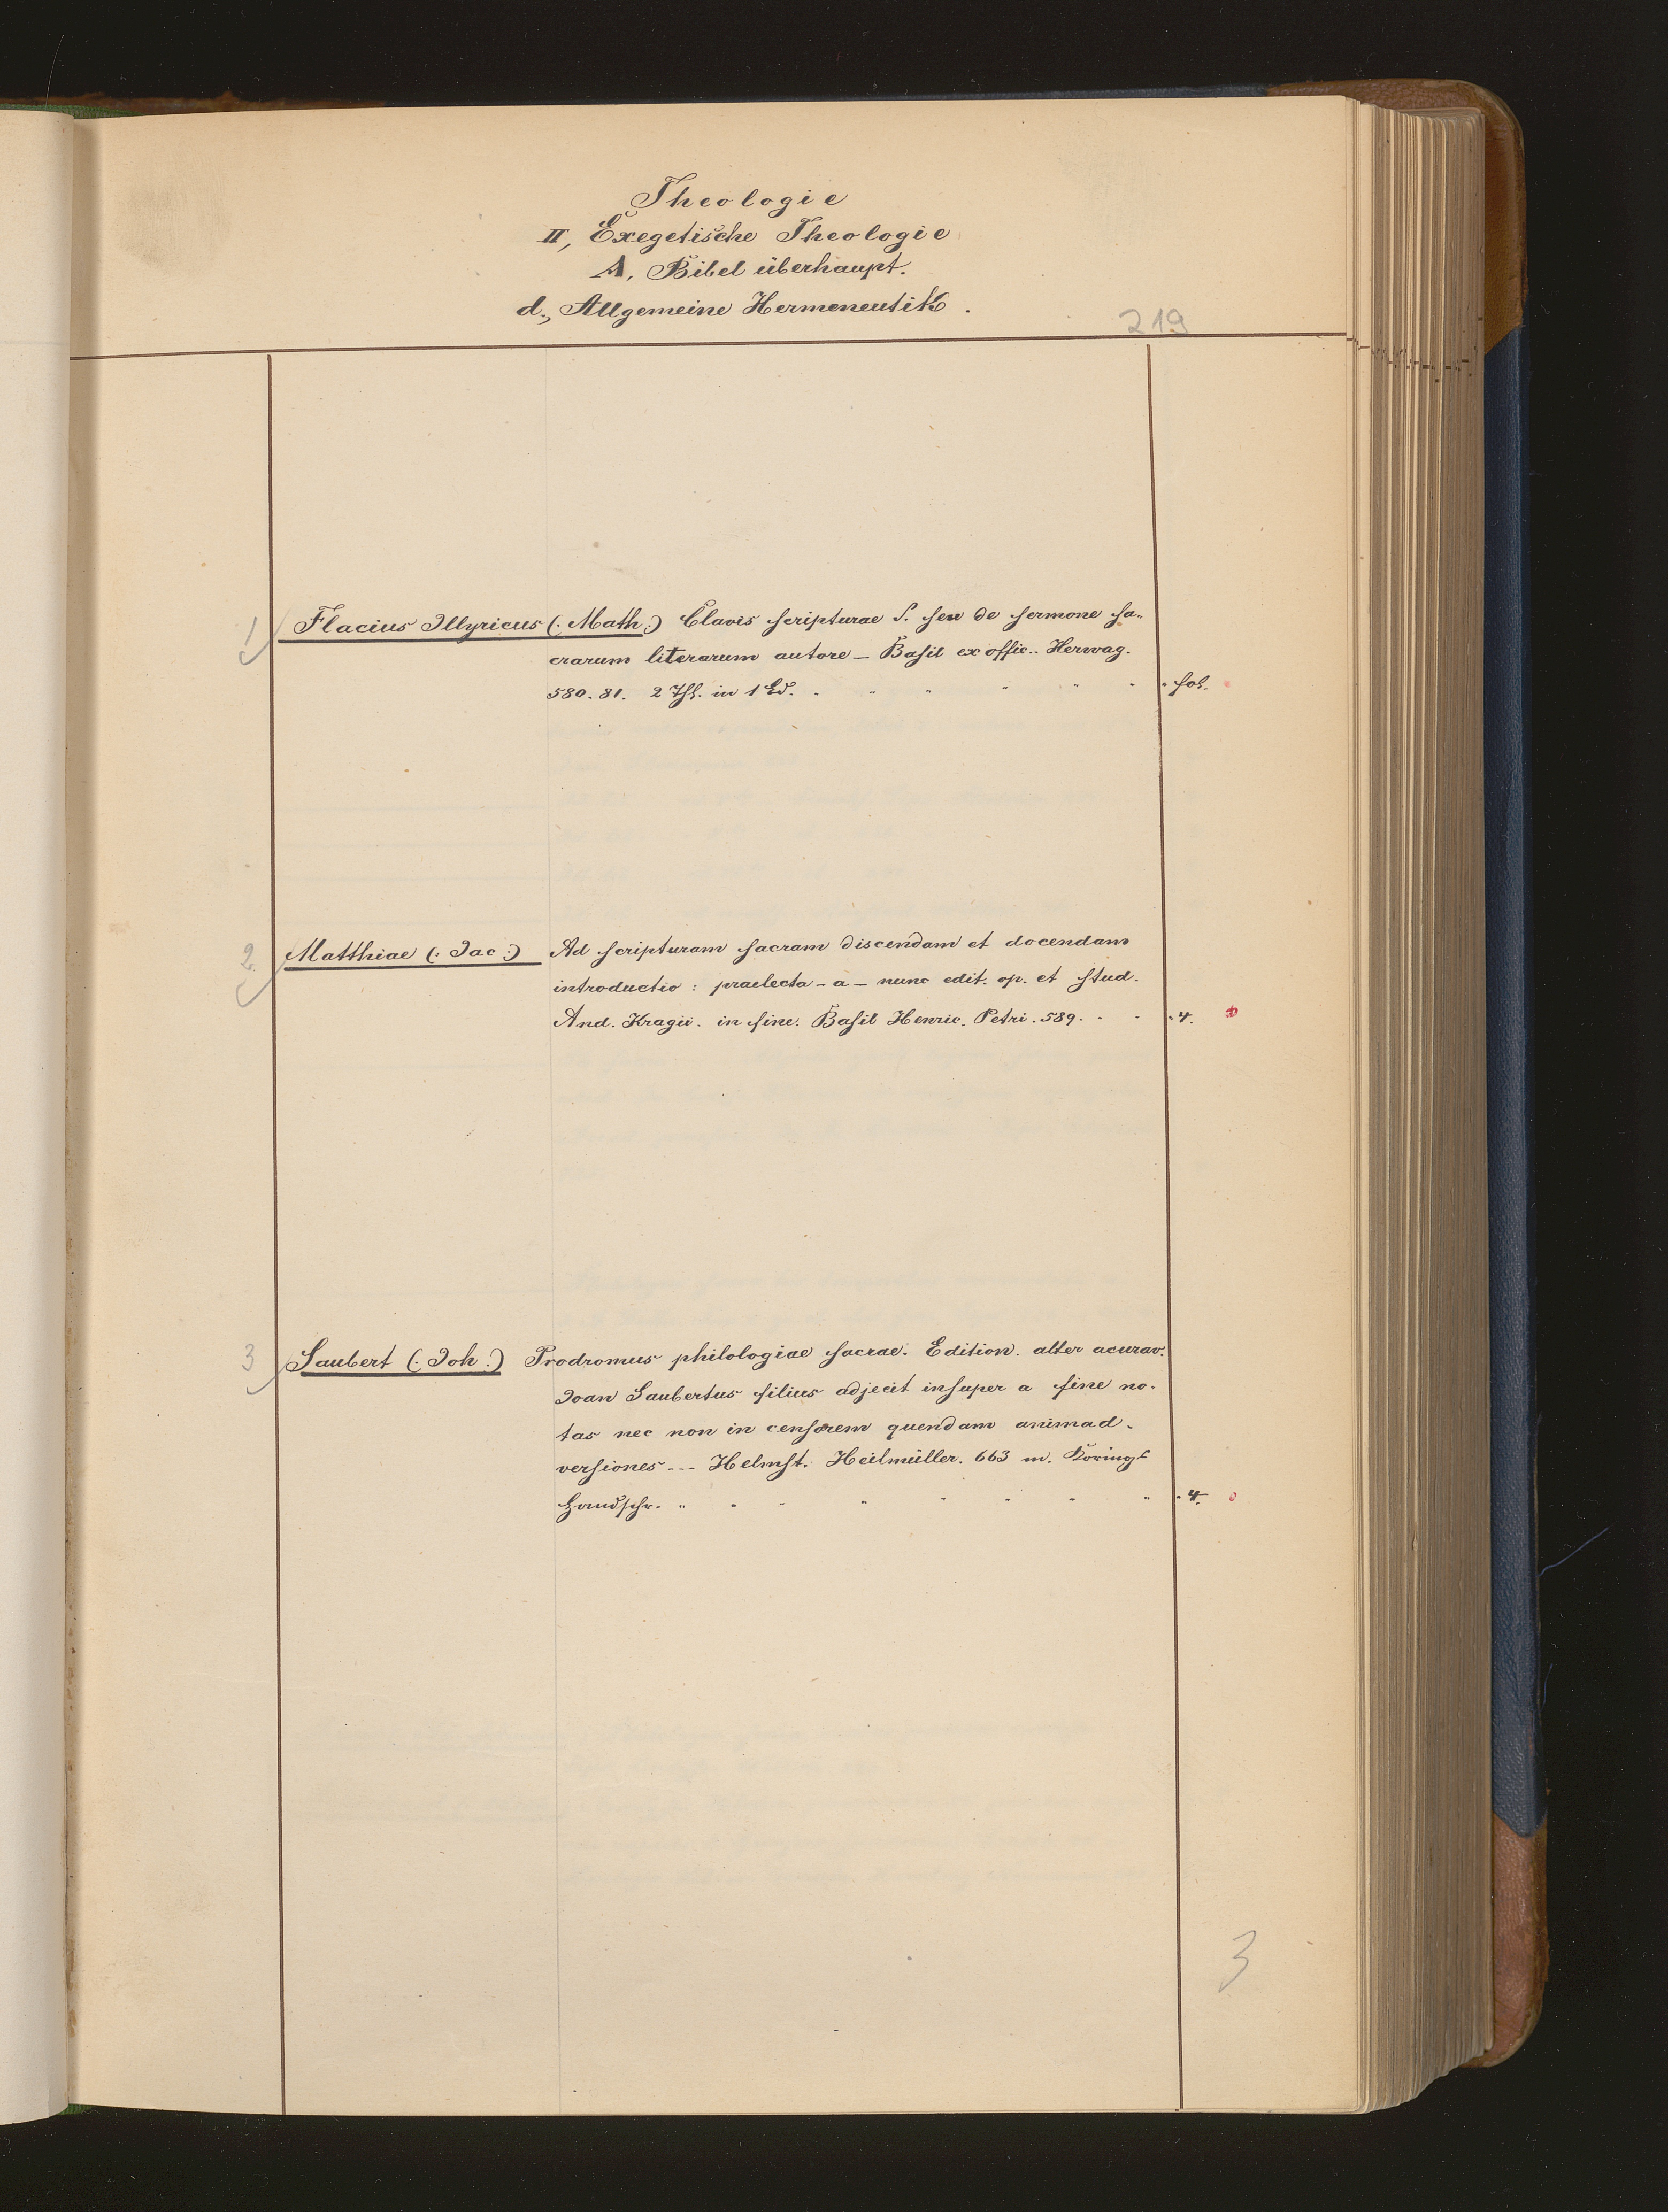 Theologie
II, Exegetische Theologie
A, Bibel überhaupt.
d., Allgemeine Hermeneutik.
219
1 Flacius Illyricus (: Math:) Clavis scripturae S. seu de sermone sa-
crarum literarum autore - Basil ex offic. Herwag.
580. 81. 2 Thl. in 1 Bd. fol.
2. Matthiae (: Jac:) Ad scripturam sacram discendam et docendam
introductio: praelecta - a - nunc edit. op. et stud.
And. Kragii. in fine. Basil Henric. Petri. 589. 4.
3 Saubert (: Joh:) Prodromus philologiae sacrae. Edition. alter acurav.
Joan Saubertus filius adjecit insuper a fine no-
tas nec non in censorem quendam animad-
versiones --- Helmst. Heilmüller. 663 m.
Handschr. 4.
3